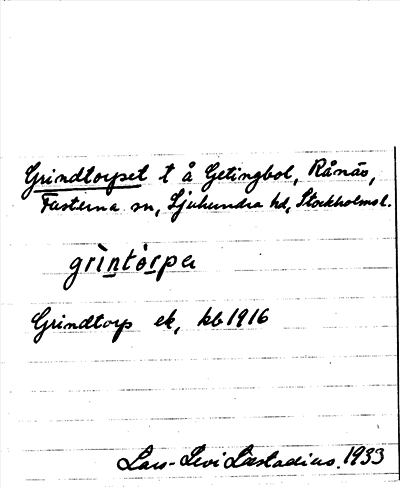 Grindtorpet t å Getingbol, Rånäs,
Fasterna sn, Sjuhundra hd, Stockholms l.
grìntòrpeɩ
Grindtorp ek, kb 1916
Lars-Levi Læstadius. 1933